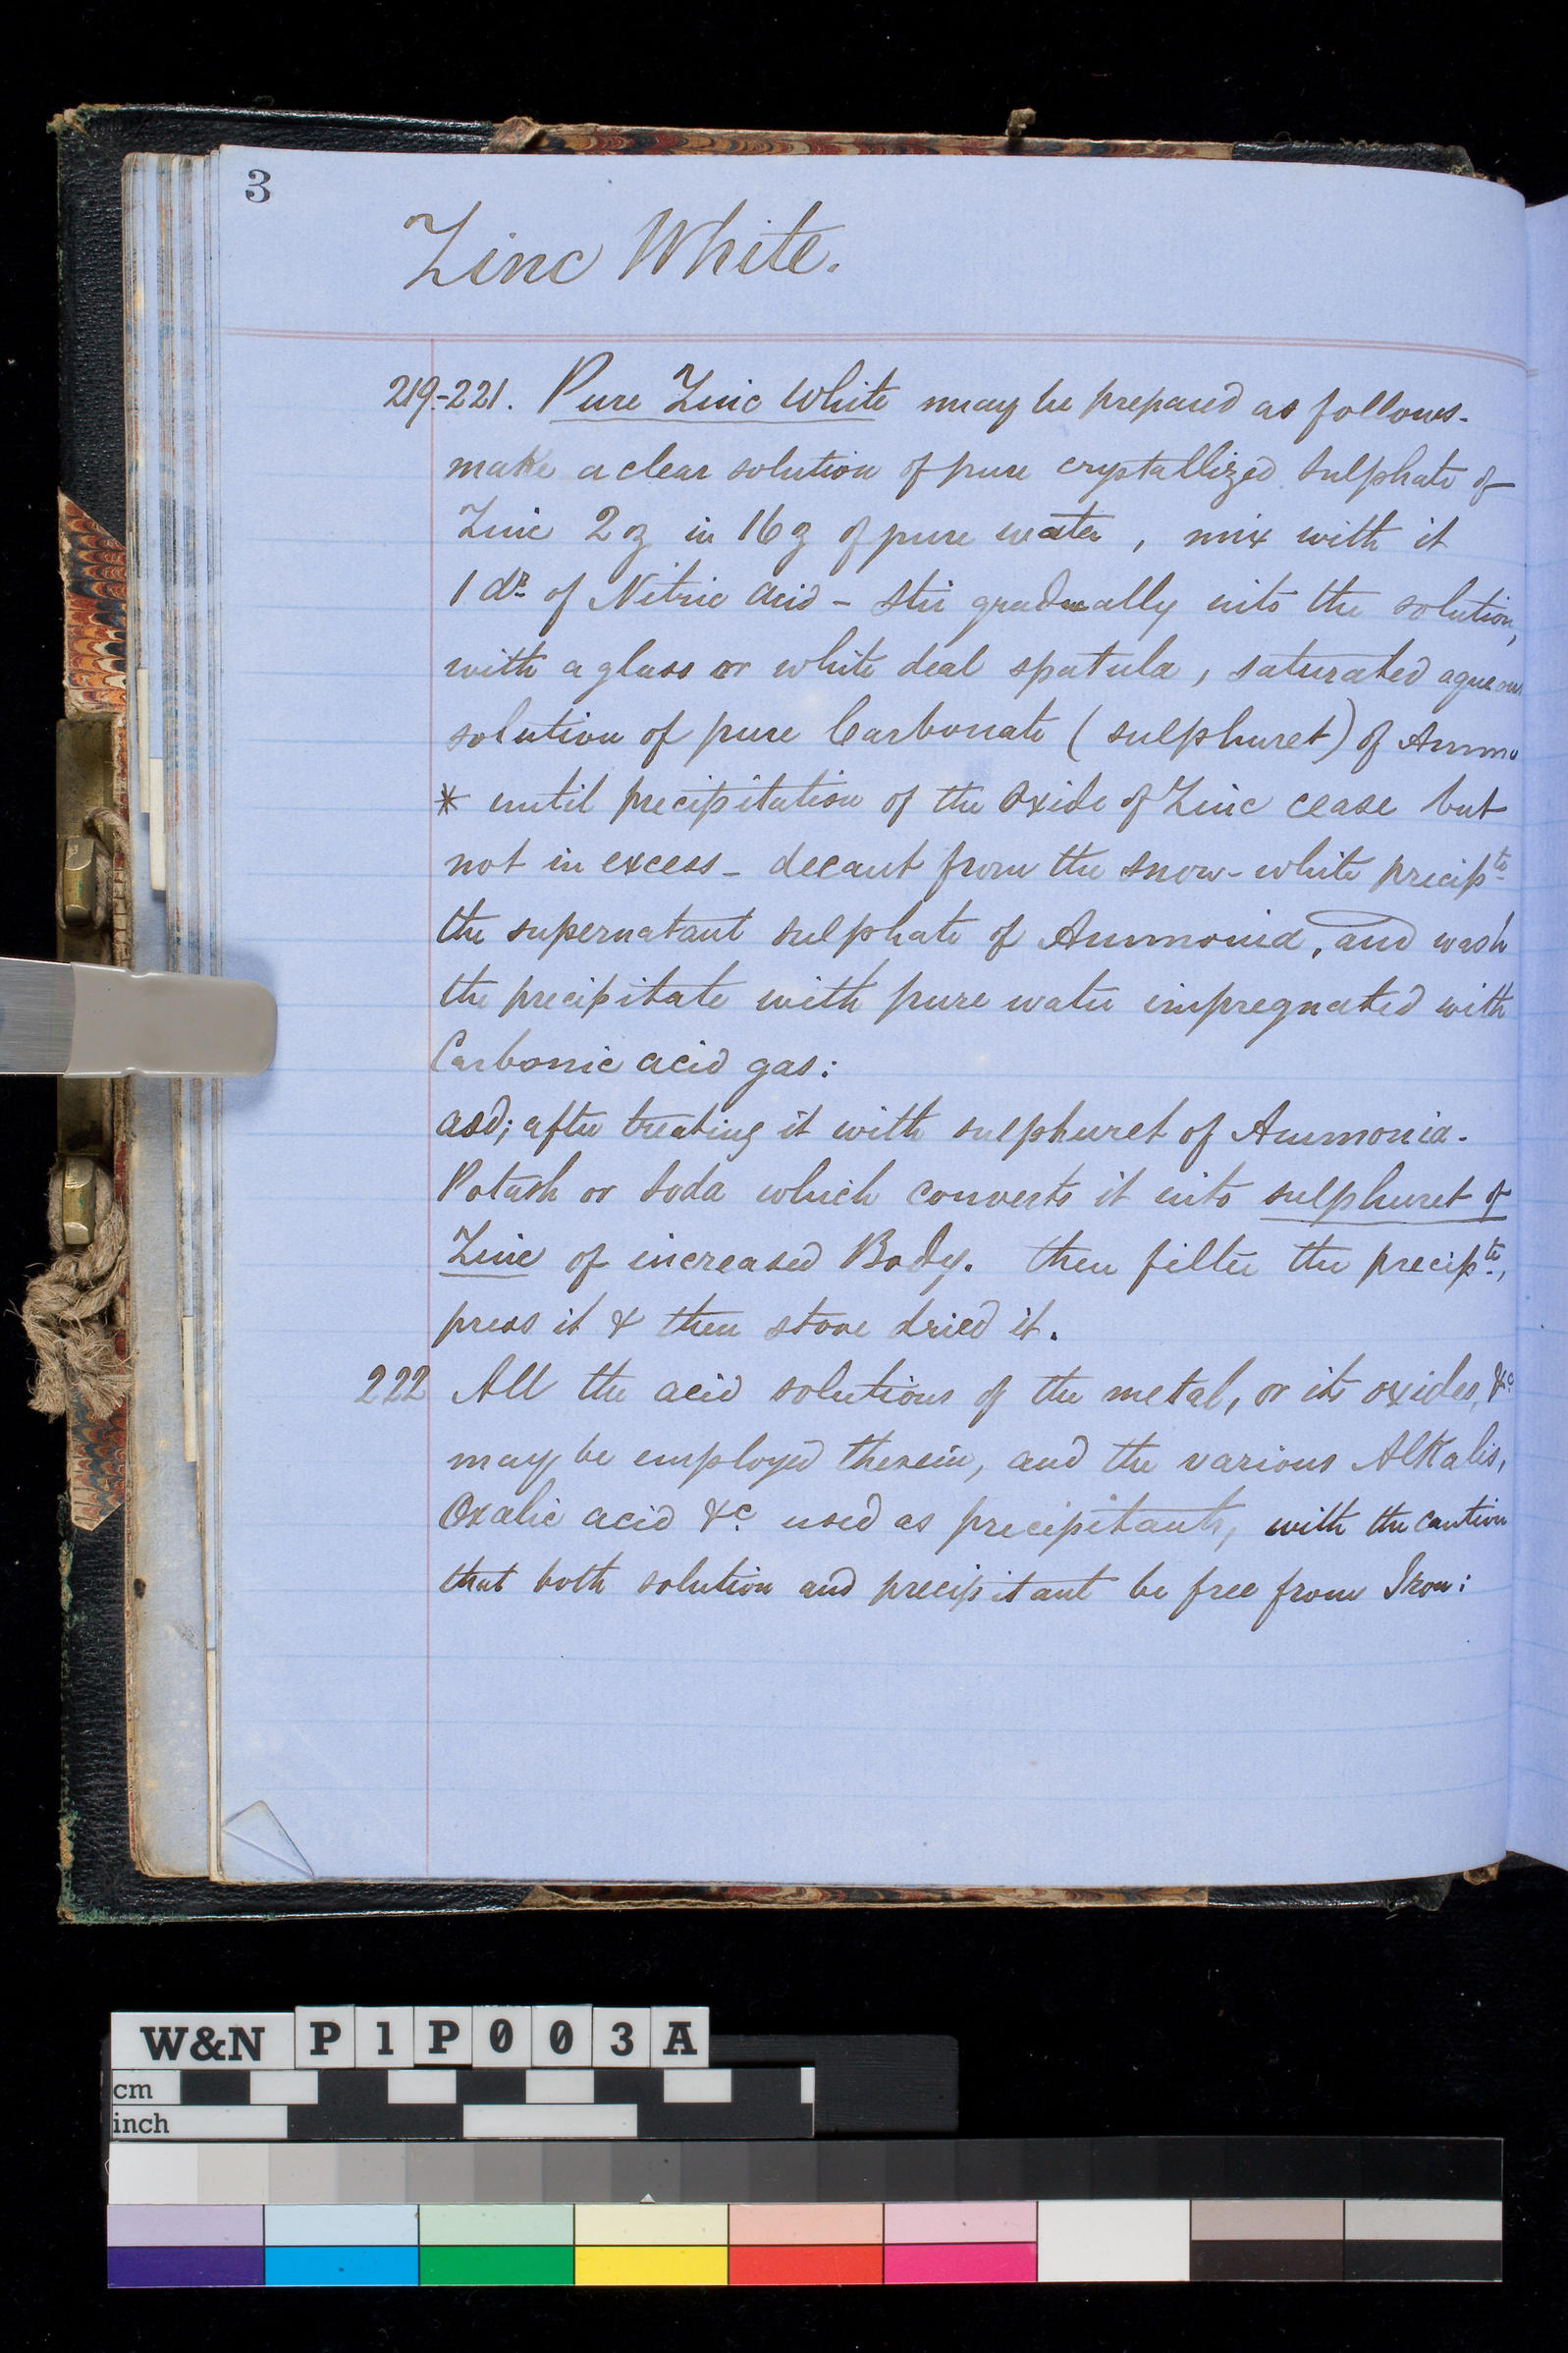 3
Zinc White.
219-221. Pure Zinc White may be prepared as follows-
make a clear solution of pure crystallized sulphate of
Zinc 2 oz in 16 oz of pure water, mix with it
1 dr. of Nitric Acid - stir gradually into the solution,
with a glass or white deal spatula, saturated aqueous
solution of pure Carbonate (sulphuret) of Ammo
* until precipitation of the Oxide of Zinc cease but
not in excess - decant from the snow-white precipte
the supernatant sulphate of Ammonia, and wash
the precipitate with pure water impregnated with
Carbonic acid gas:
add; after treating it with sulphuret of Ammonia.
Potash or Soda which converts it into sulphuret of
Zinc of increased Body. then filter the precipte,
press it & then stove dried it.
222 All the acid solutions of the metal, or its oxides, &c
may be employed therein, and the various Alkalis,
Oxalic acid &c. used as precipitants, with the caution
that both solution and precipitant be free from Iron:
W&N P1P003A
cm
inch